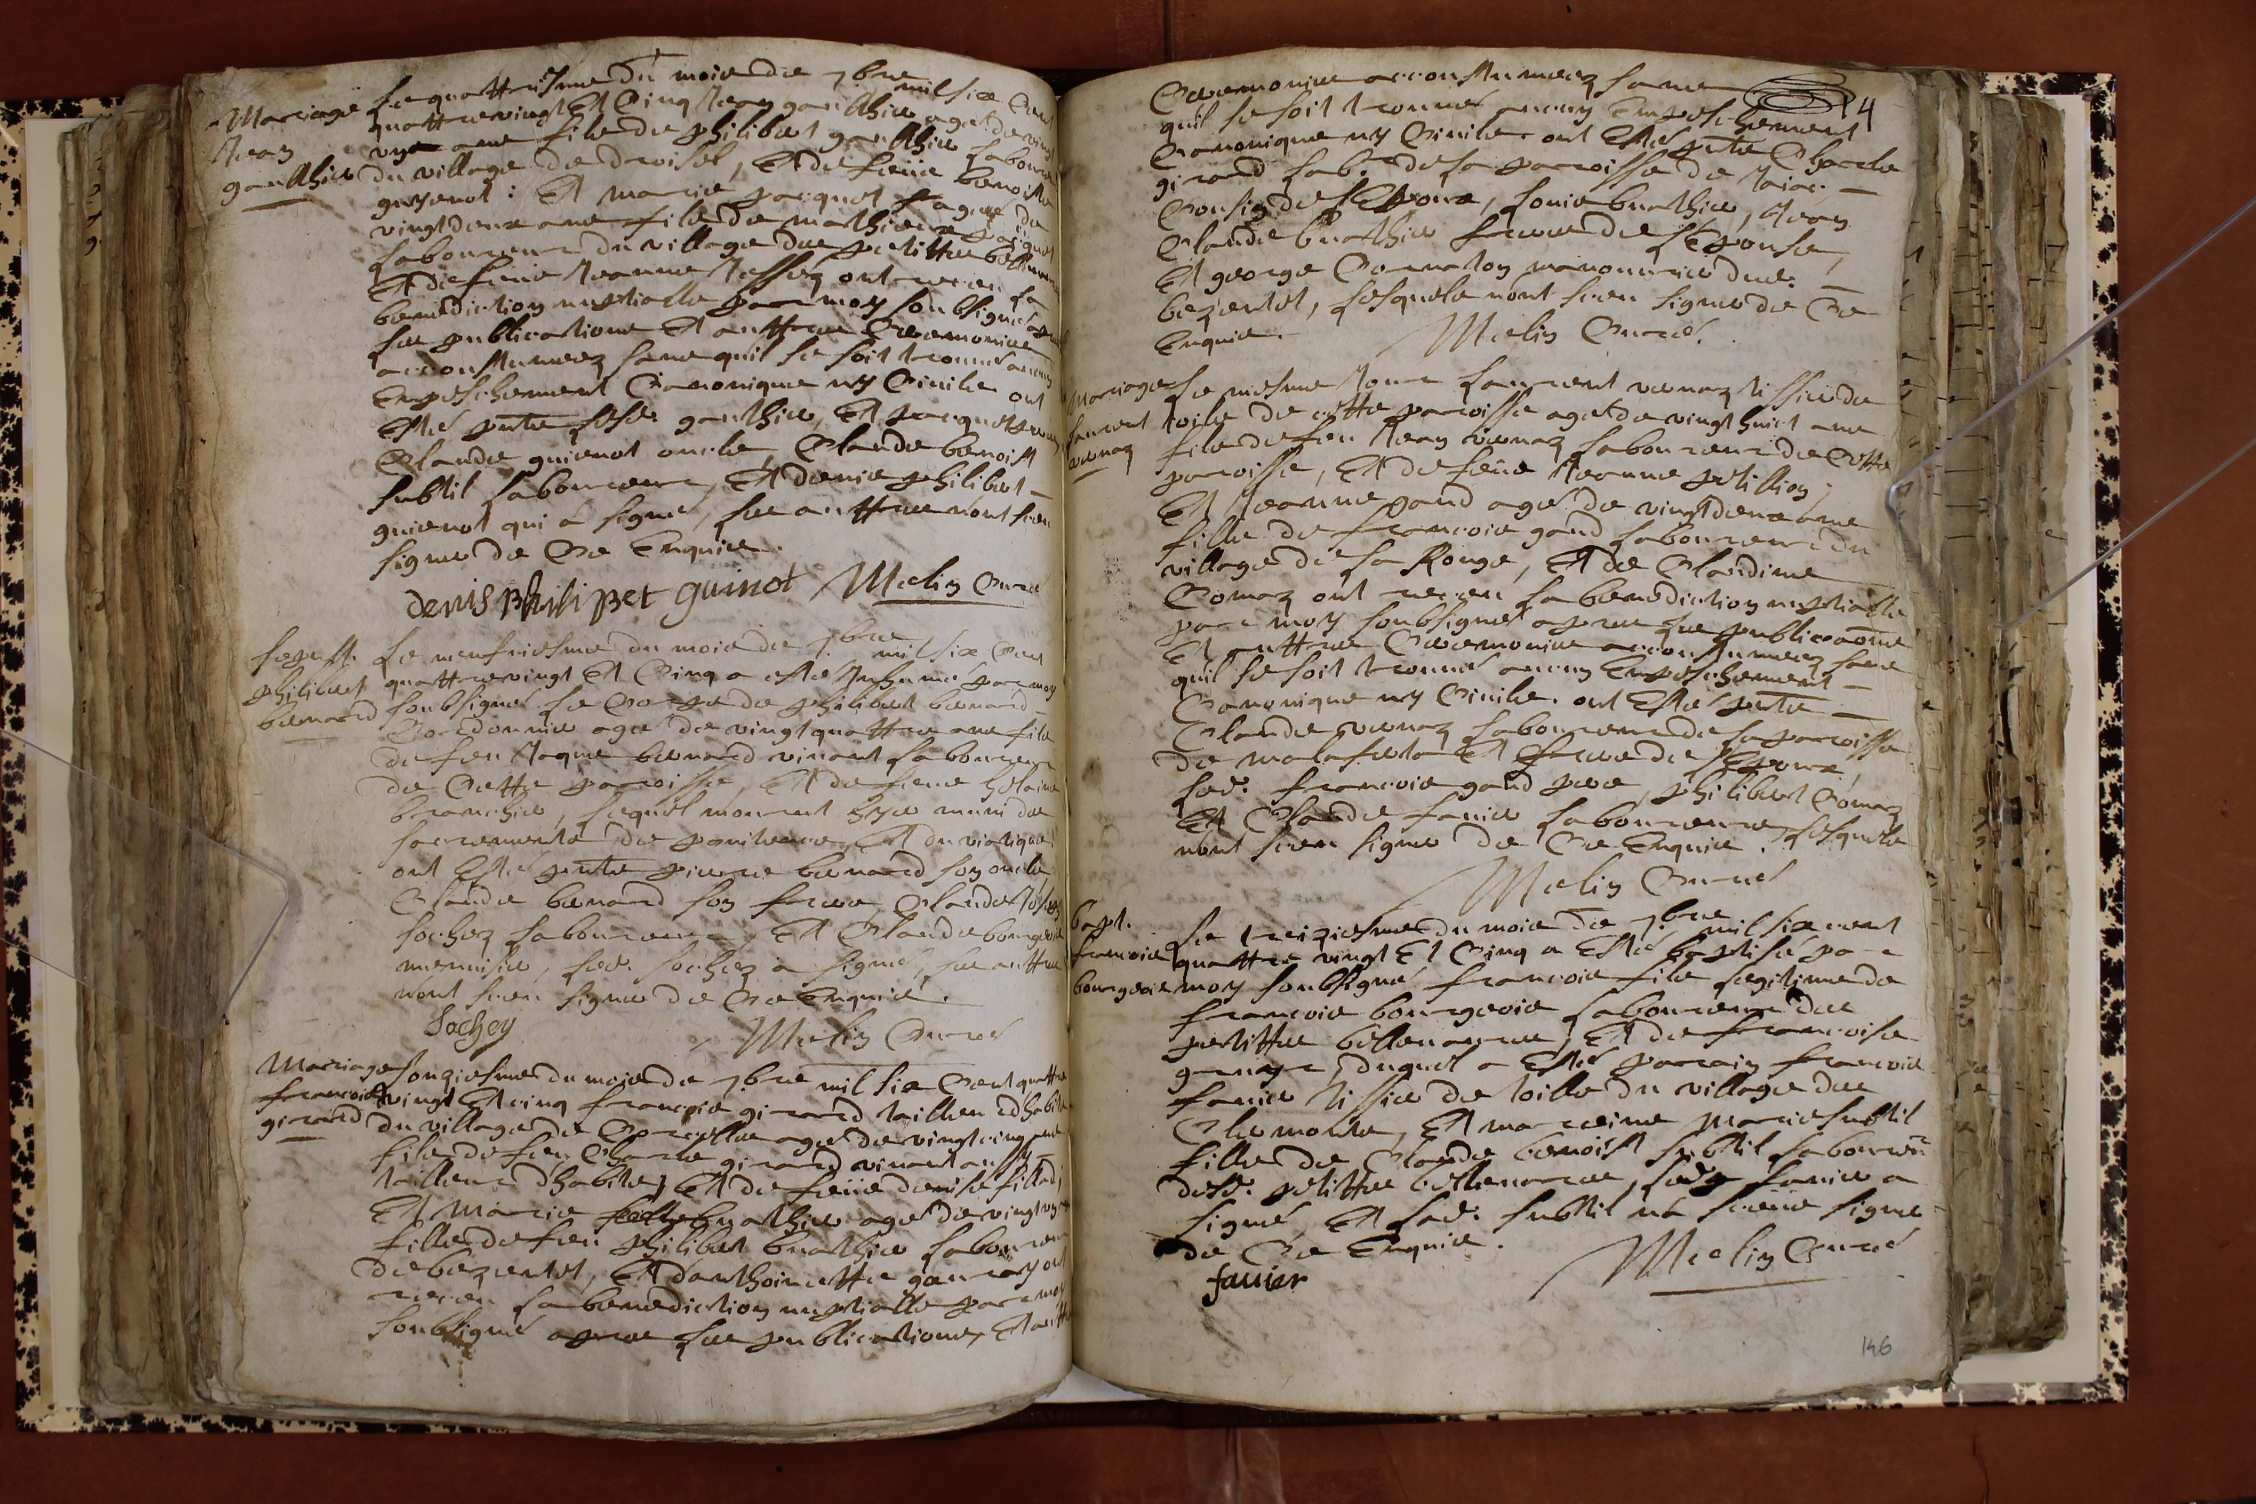 Mariage
Jean
gauthier
Le quattriesme du mois de 7bre mil six Cent
quattrevingt Et Cinq Jean gauthier agé de vingt
un ans fils de philibert gauthier laboureur
du village de droisel, Et de feüe benoiste
guyenot : Et marie pacquet agée de
vingt deux ans fille de mathieu pacquet
laboureur du village des petittes bellenoues
Et de feüe Jeanne ont receu la
benediction nuptialle par moy soubsigné apres
les publications Et auttres Ceremonies
accoustumeez sans quil se soit trouvé aucun
Empeschement Canonique ny Civile. ont
Esté pntz lesd. gauthier, Et pacquet peres,
Claude guienot oncle, Claude benoist
subtil laboureurs, Et denis philibert
guienot qui a signé, les auttres nont sceu
signer de Ce Enquis.
denis philipbet guinot Melin Curé
sepult.
philibert
benard
Le neufviesme du mois de 7bre mil six Cent
quattrevingt Et Cinq a esté Inhumé par moy
soubsigné le Corps de philibert benard
Cordonnier agé de vingt quattre ans fils
de feu Jaque benard vivant laboureur
de Cette parroisse, Et de feüe helaine
branchier, lequel mourut hyer muni des
sacrements de penitence, Et du viatique
ont Esté pntz pierre benard son oncle,
Claude benard son frere, Claude
sochey laboureur, Et Claude bourgeois
menuisier, led. sochey a signé, les auttres
nont sceu signer de Ce Enquis.
Sochey Melin Curé
Mariage
francois
girard
Lonziesme du mois de 7bre mil six Cent quattre
vingt Et cinq francois girard tailleur dhabits
du village de agé de vingt cinq ans
fils de feu Charle girard vivant aussy
tailleur dhabits, Et de feüe denise
Et Marie buathier agée de vingt un ans
fille de feu philibert buathier laboureur
de bezentet, Et danthoinette ont
receu la benediction nuptialle par moy
soubsigné apres les publications, Et auttres
14
Ceremonies accoustumeez sans
quil se soit trouvé aucun Empeschement
Canonique ny Civile. ont Esté pntz Charle
girard lab. de la parroisse de
Cousin de lEpoux, Louis buathier, Jean
Claude buathier freres de lEpouse,
Et george Cornaton manouvrier dud.
bezentet, lesquels nont sceu signer de Ce
Enquis. Melin Curé.
Mariage
laurent
vernaz
Le mesme Jour laurent vernaz tissier de
toile de cette parroisse agé de vingt huict ans
fils de feu Jean vernaz laboureur de Cette
parroisse, Et de feüe Jeanne petillion,
Et Jeanne gand agé de vingt deux ans
fille de francois gand laboureur du
village de la Rouge, Et de Claudine
Comaz ont receu la benediction nuptialle
par moy soubsigné apres les publications
Et auttres Ceremonies accoustumeez sans
quil se soit trouvé aucun Empeschement
Canonique ny Civile. ont Esté pntz
Claude vernaz laboureur de la parroisse
de malafreta Et frere de lEpoux,
led. francois gand pere, philibert Comaz
Et Claude favier laboureurs, lesquels
nont sceu signer de Ce Enquis.
Melin Curé
bapt.
francois
bourgeois
Le treiziesme du mois de 7bre mil six cent
quattre vingt Et Cinq a Esté baptisé par
moy soubsigné francois fils legitime de
francois bourgeois laboureur des
petittes bellenoues, Et de francoise
, duquel a Esté parrain francois
favier tissier de toille du village des
, Et marreine Marie subtil
fille de Claude benoist subtil laboureur
desd. petittes bellenoues, led. favier a
signé, Et lad. subtil na sceüe signer
de Ce Enquis. Melin Curé
favier
146